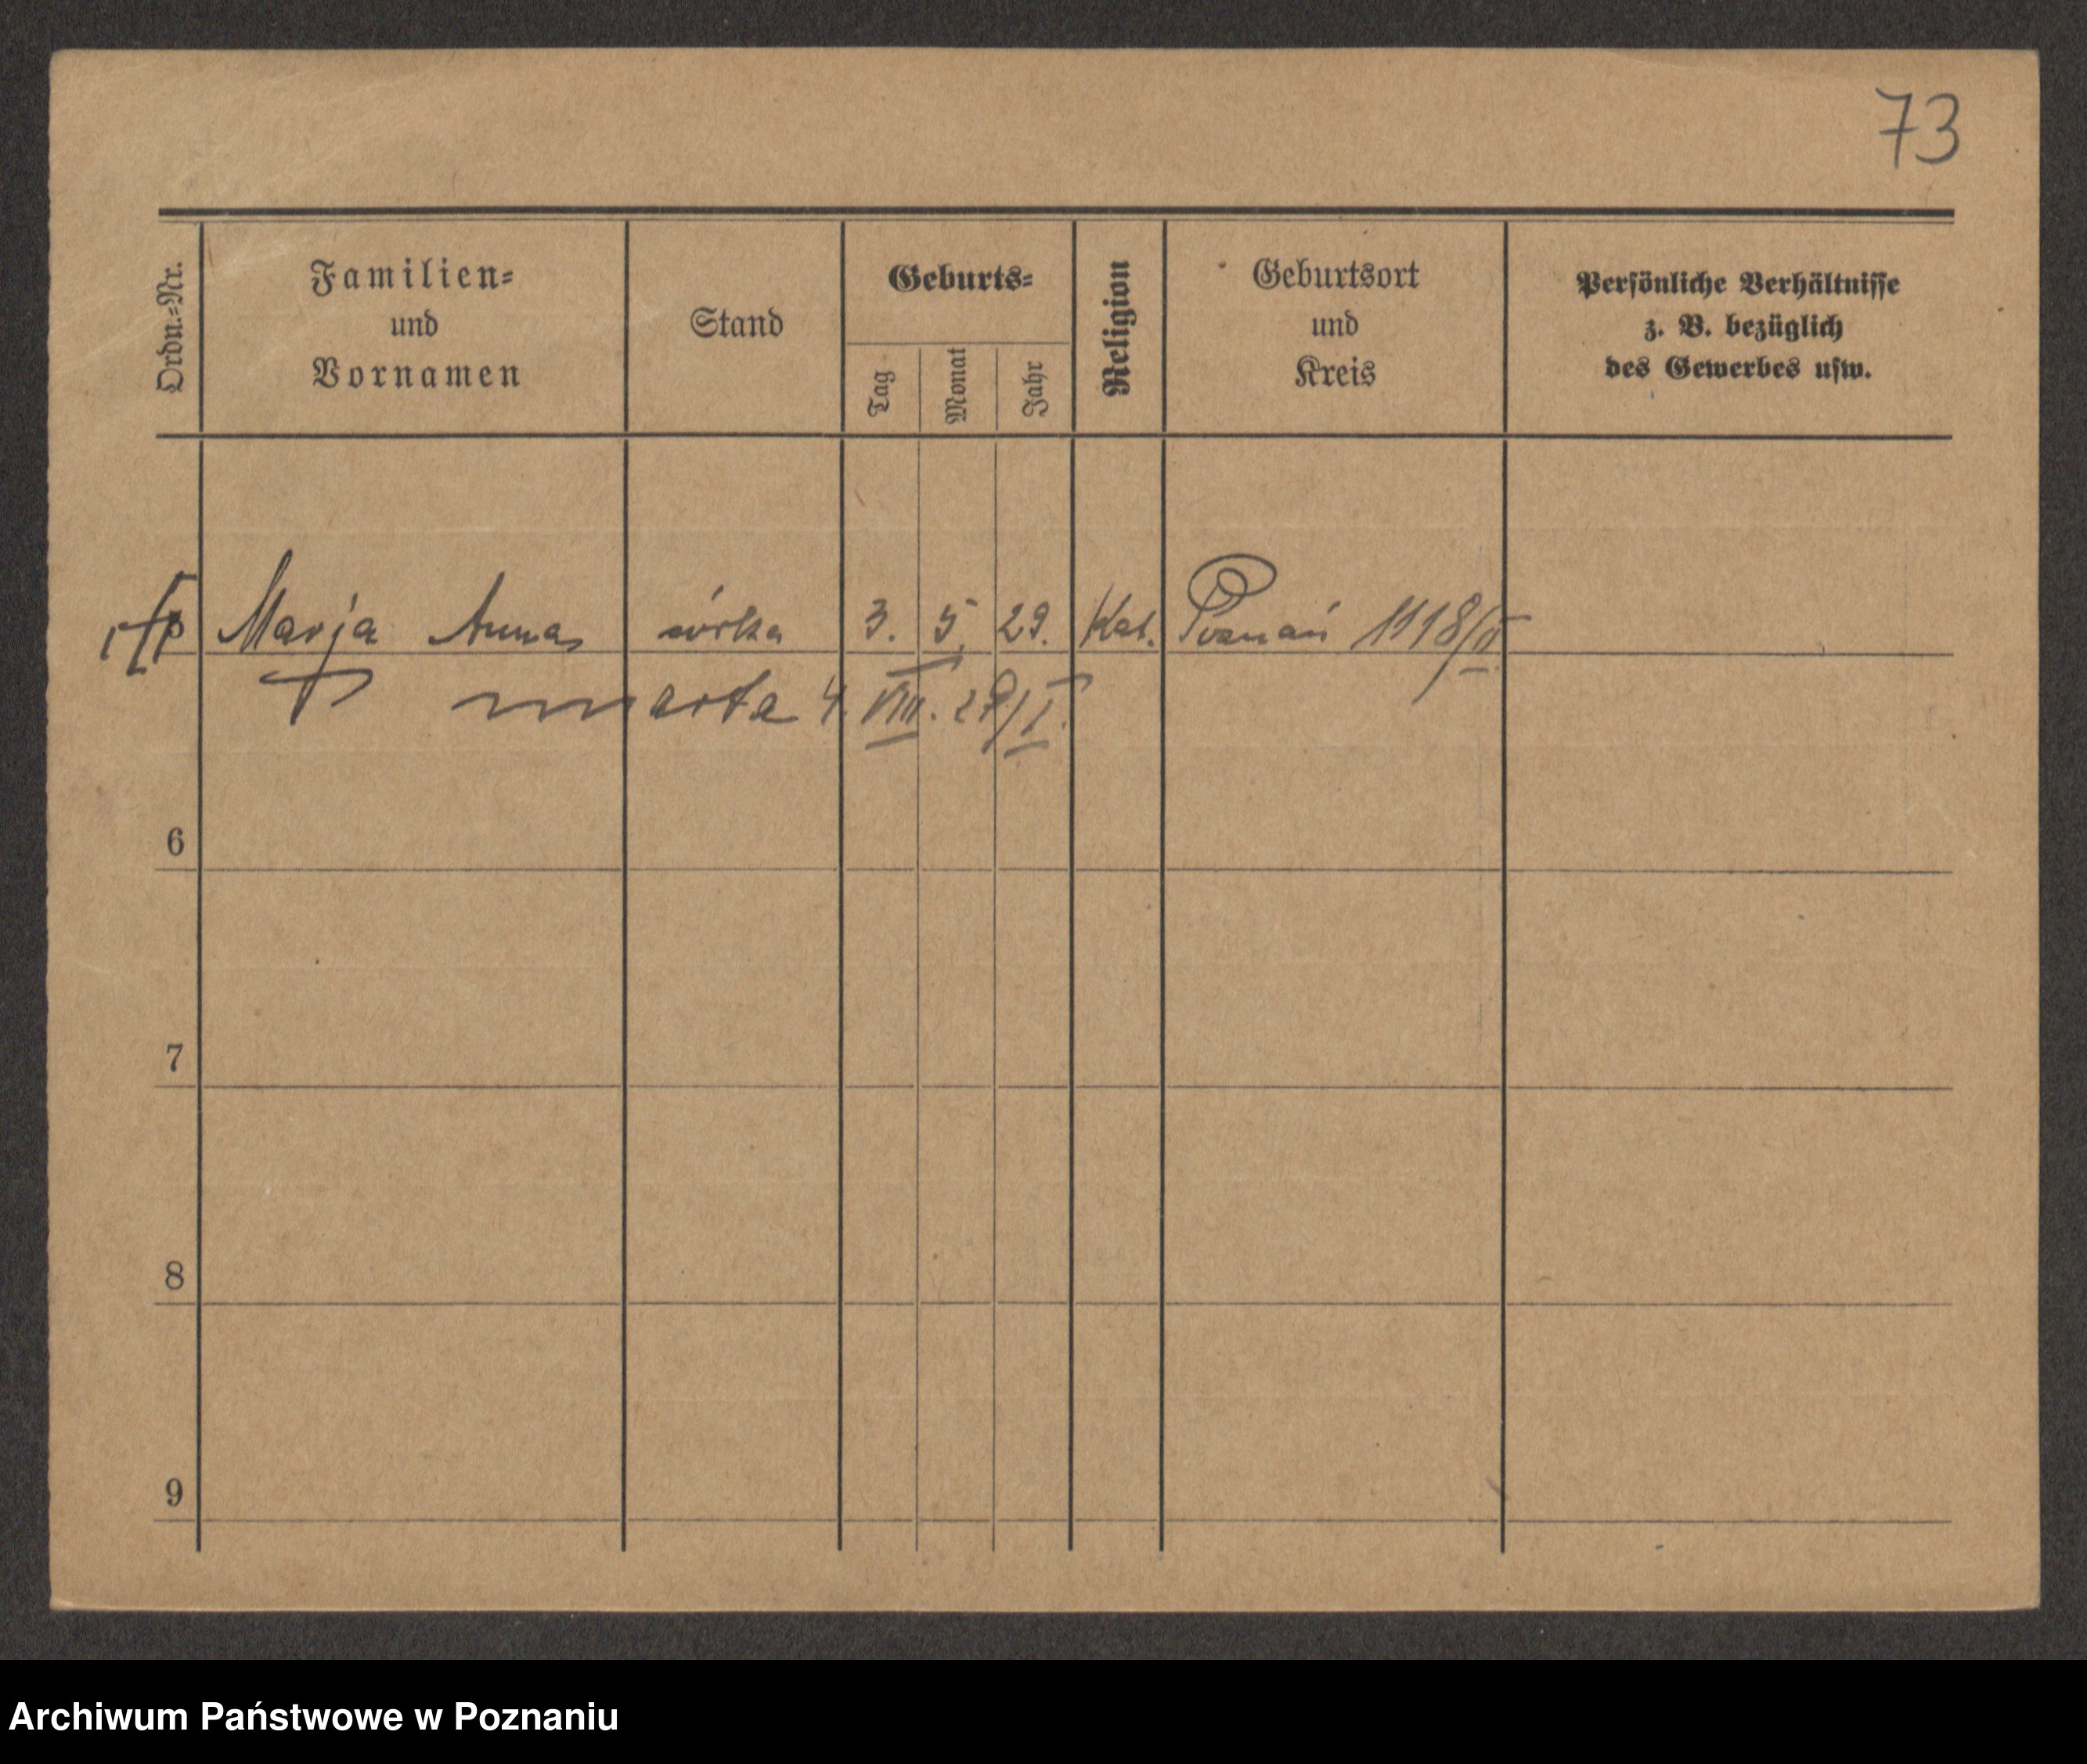 73
Ordn.-Nr.
Familien-
und
Vornamen
Stand
Geburts-
Tag
Monat
Jahr
Religion
Geburtsort
und
Kreis
Persönliche Verhältnisse
z. B. bezüglich
des Gewerbes usw.
Marja Anna córka 3. 5. 29. Kat. Poznań 1118/II
zmarła 4. VIII. 29/I.
6
7
8
9
Archiwum Państwowe w Poznaniu